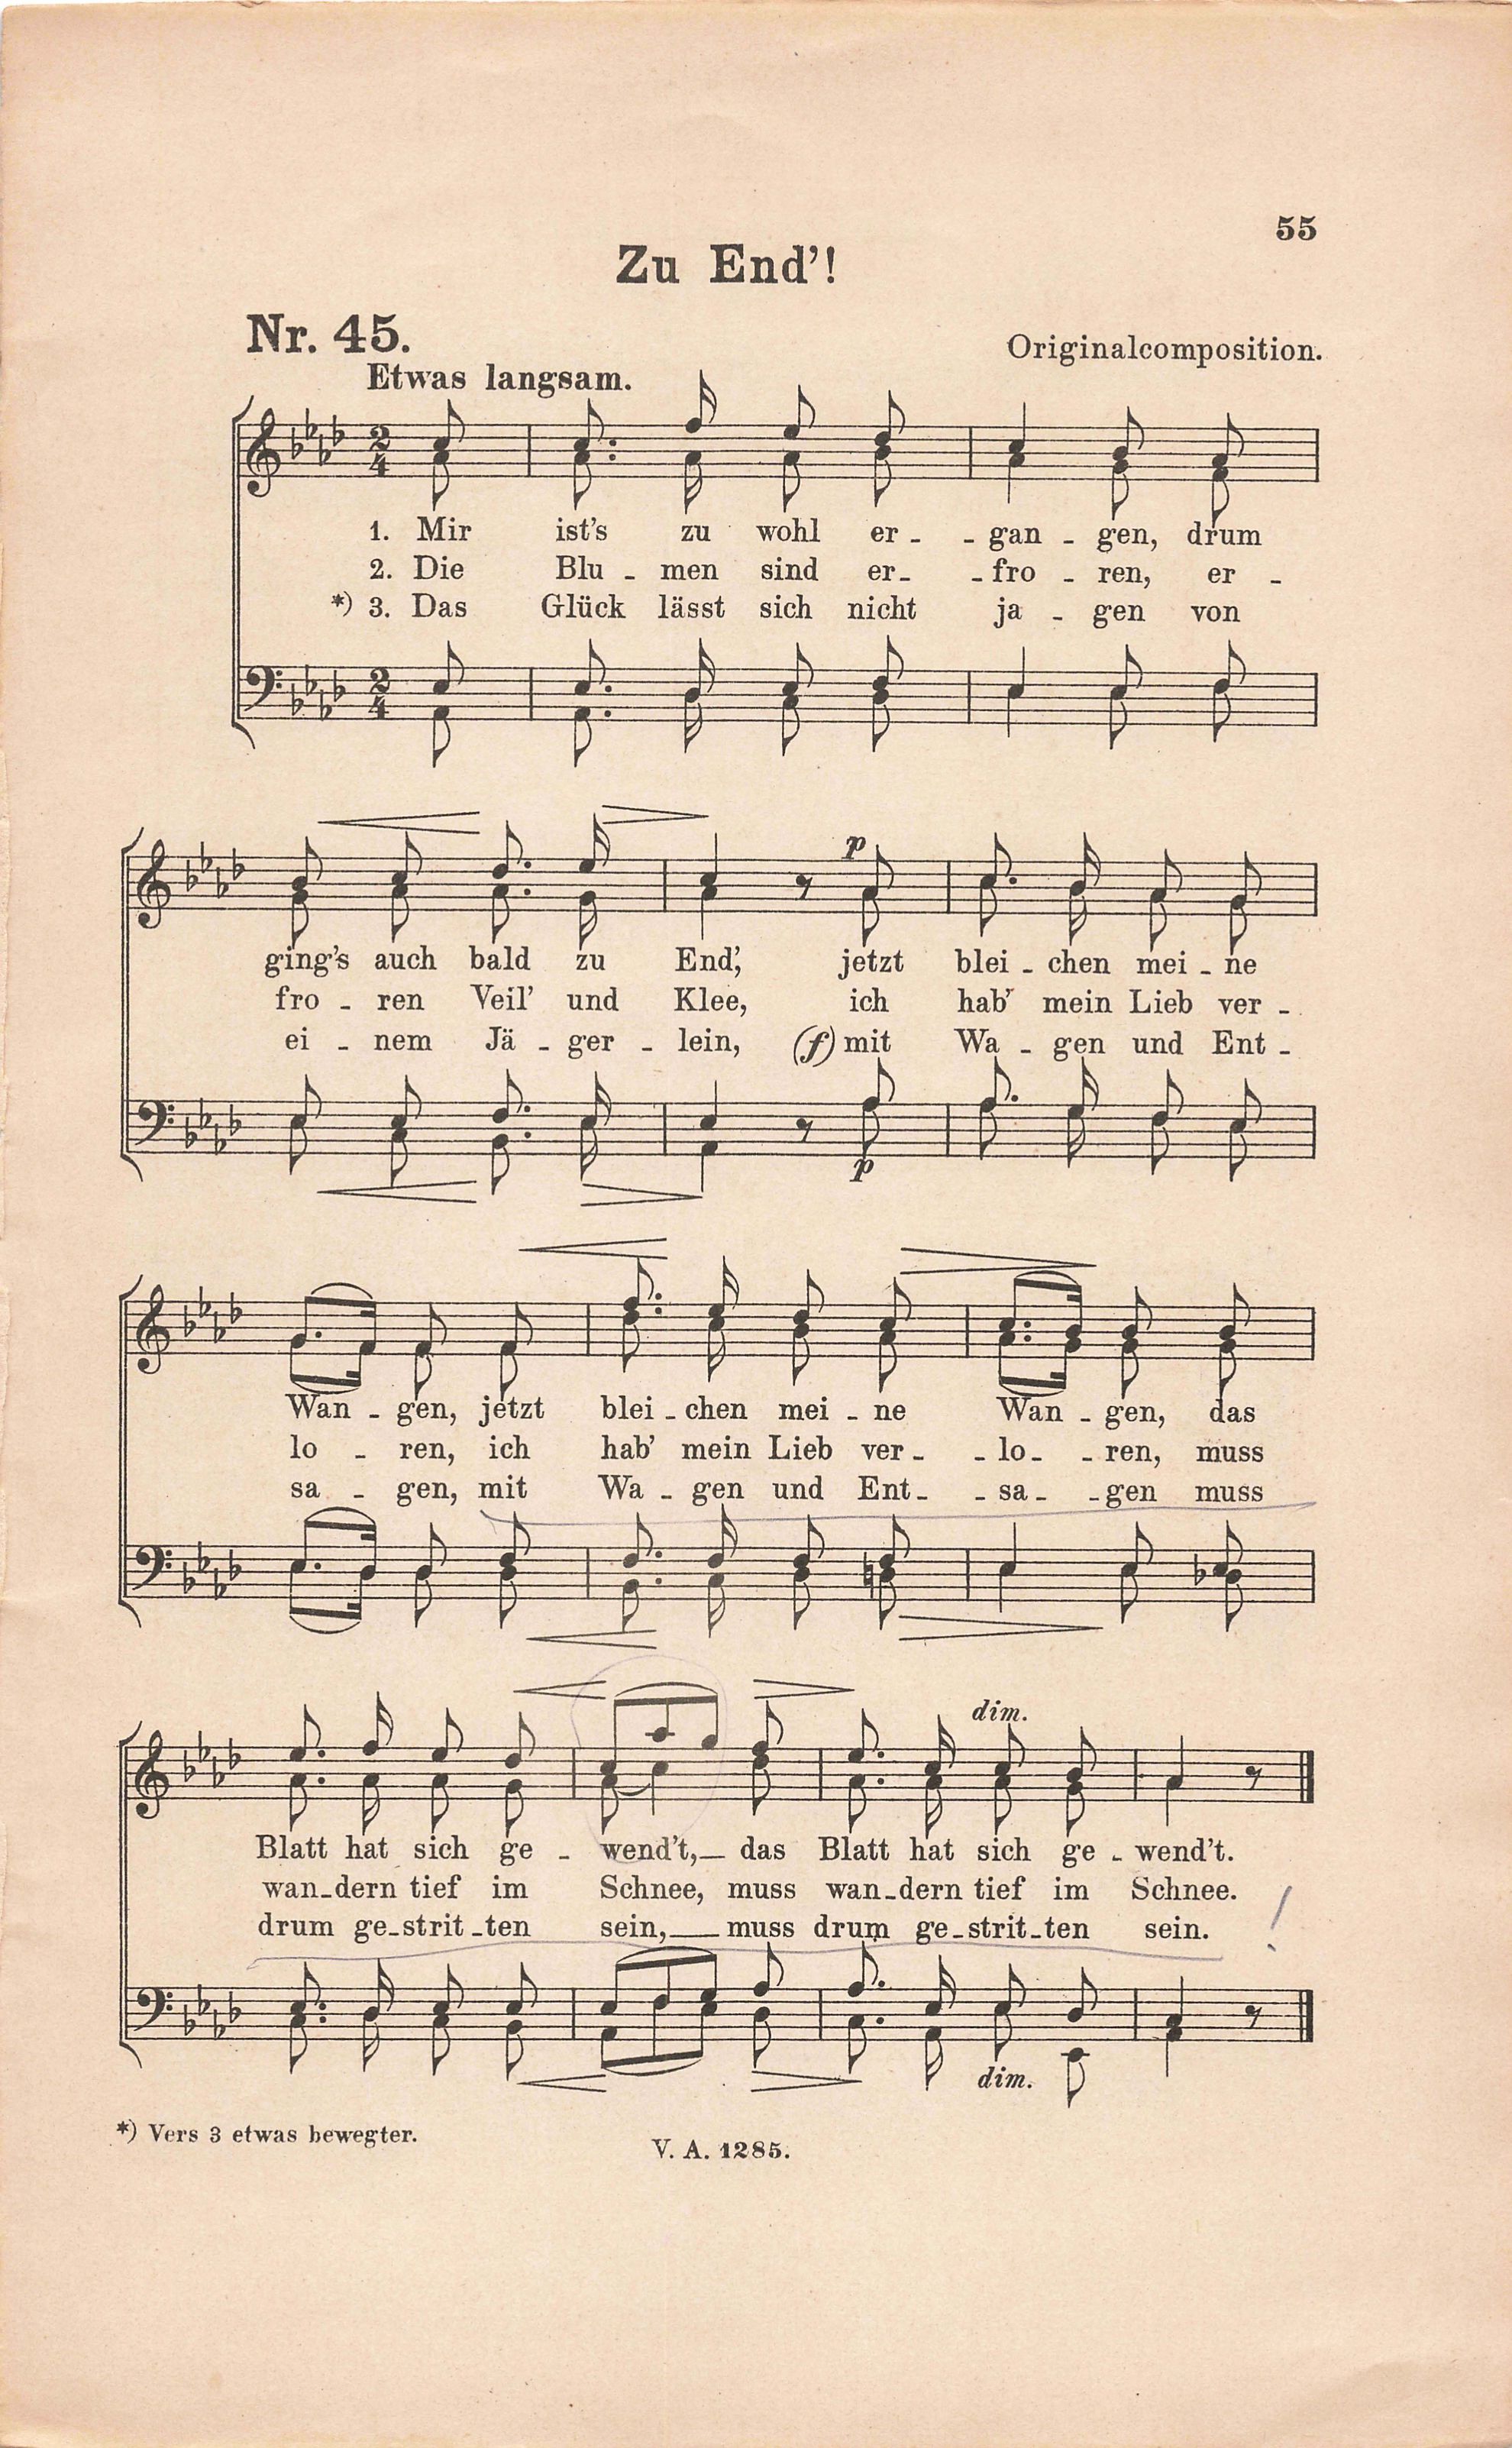 55
Zu End'!
Nr. 45.
Originalcomposition.
Etwas langsam.
1. Mir ist's zu wohl er - - gan - gen, drum
2. Die Blu - men sind er - - fro - ren, er -
*) 3. Das Glück lässt sich nicht ja - gen von
p
ging's auch bald zu End', jetzt blei - chen mei - ne
fro - ren Veil' und Klee, ich hab' mein Lieb ver -
ei - nem Jä - ger - lein, (f) mit Wa - gen und Ent -
p
Wan - gen, jetzt blei - chen mei - ne Wan - gen, das
lo - ren, ich hab' mein Lieb ver - - lo - - ren, muss
sa - gen, mit Wa - gen und Ent - - sa - - gen muss
dim.
Blatt hat sich ge - wend't, das Blatt hat sich ge - wend't.
wan - dern tief im Schnee, muss wan - dern tief im Schnee.
drum ge - strit - ten sein, muss drum ge - strit - ten sein. !
dim.
*) Vers 3 etwas bewegter.
V. A. 1285.